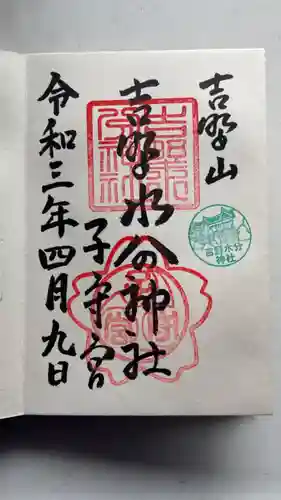 吉野山
吉野水分神社
子守宮
令和三年四月九日
吉野水分
神社